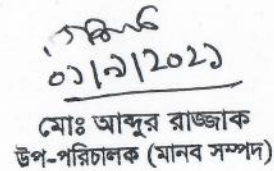 ০১/৯/২০২১
মোঃ আব্দুর রাজ্জাক
উপ-পরিচালক (মানব সম্পদ)